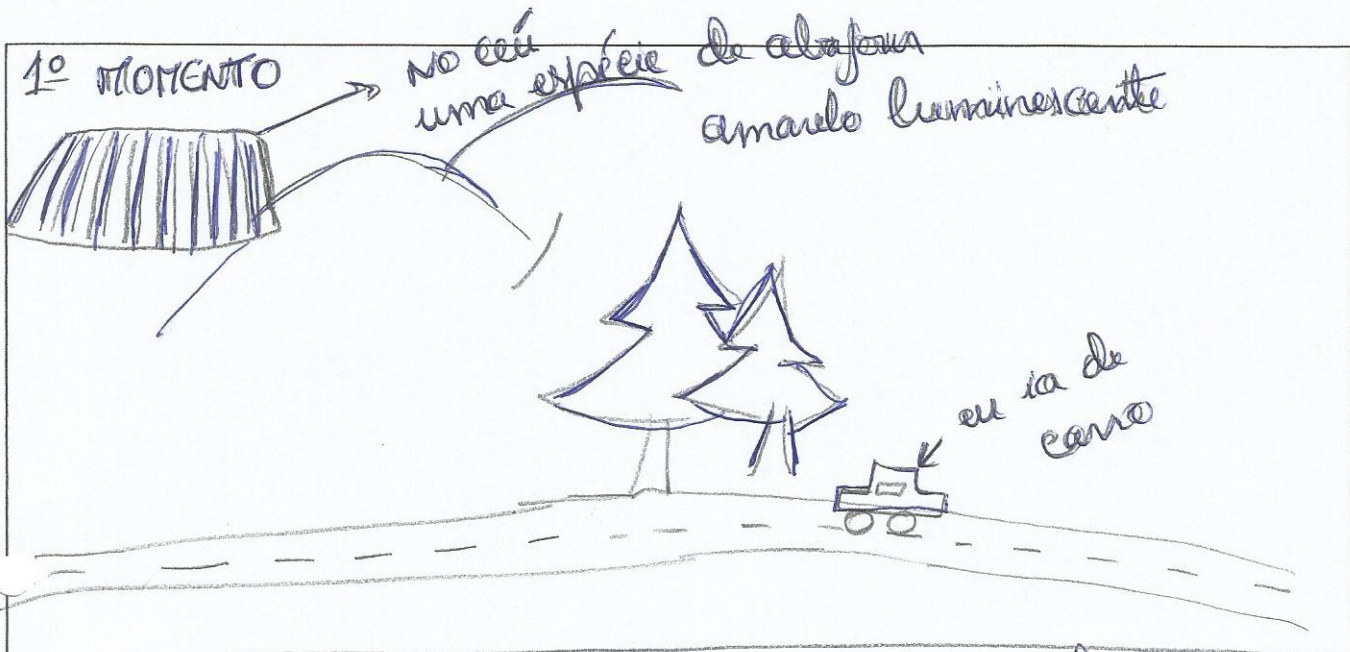 1º MOMENTO
No céu
uma espécie de abajour
amarelo luminescente
eu ia de
carro